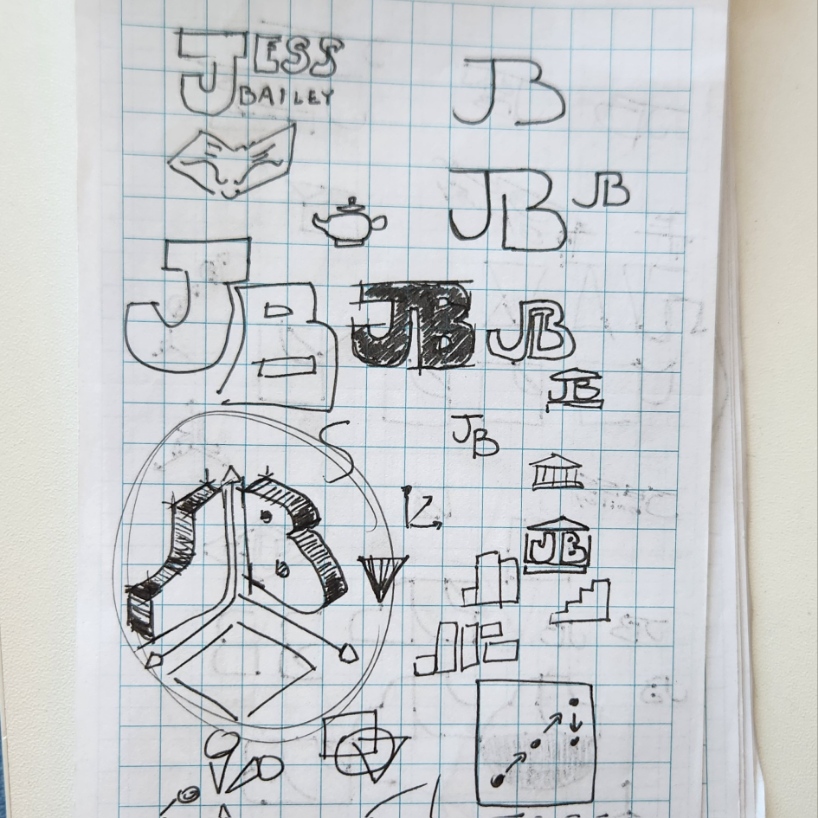 JESS
BAILEY
JB
JB
JB
JB
JB
JB
JB
JB
S
JB
JB